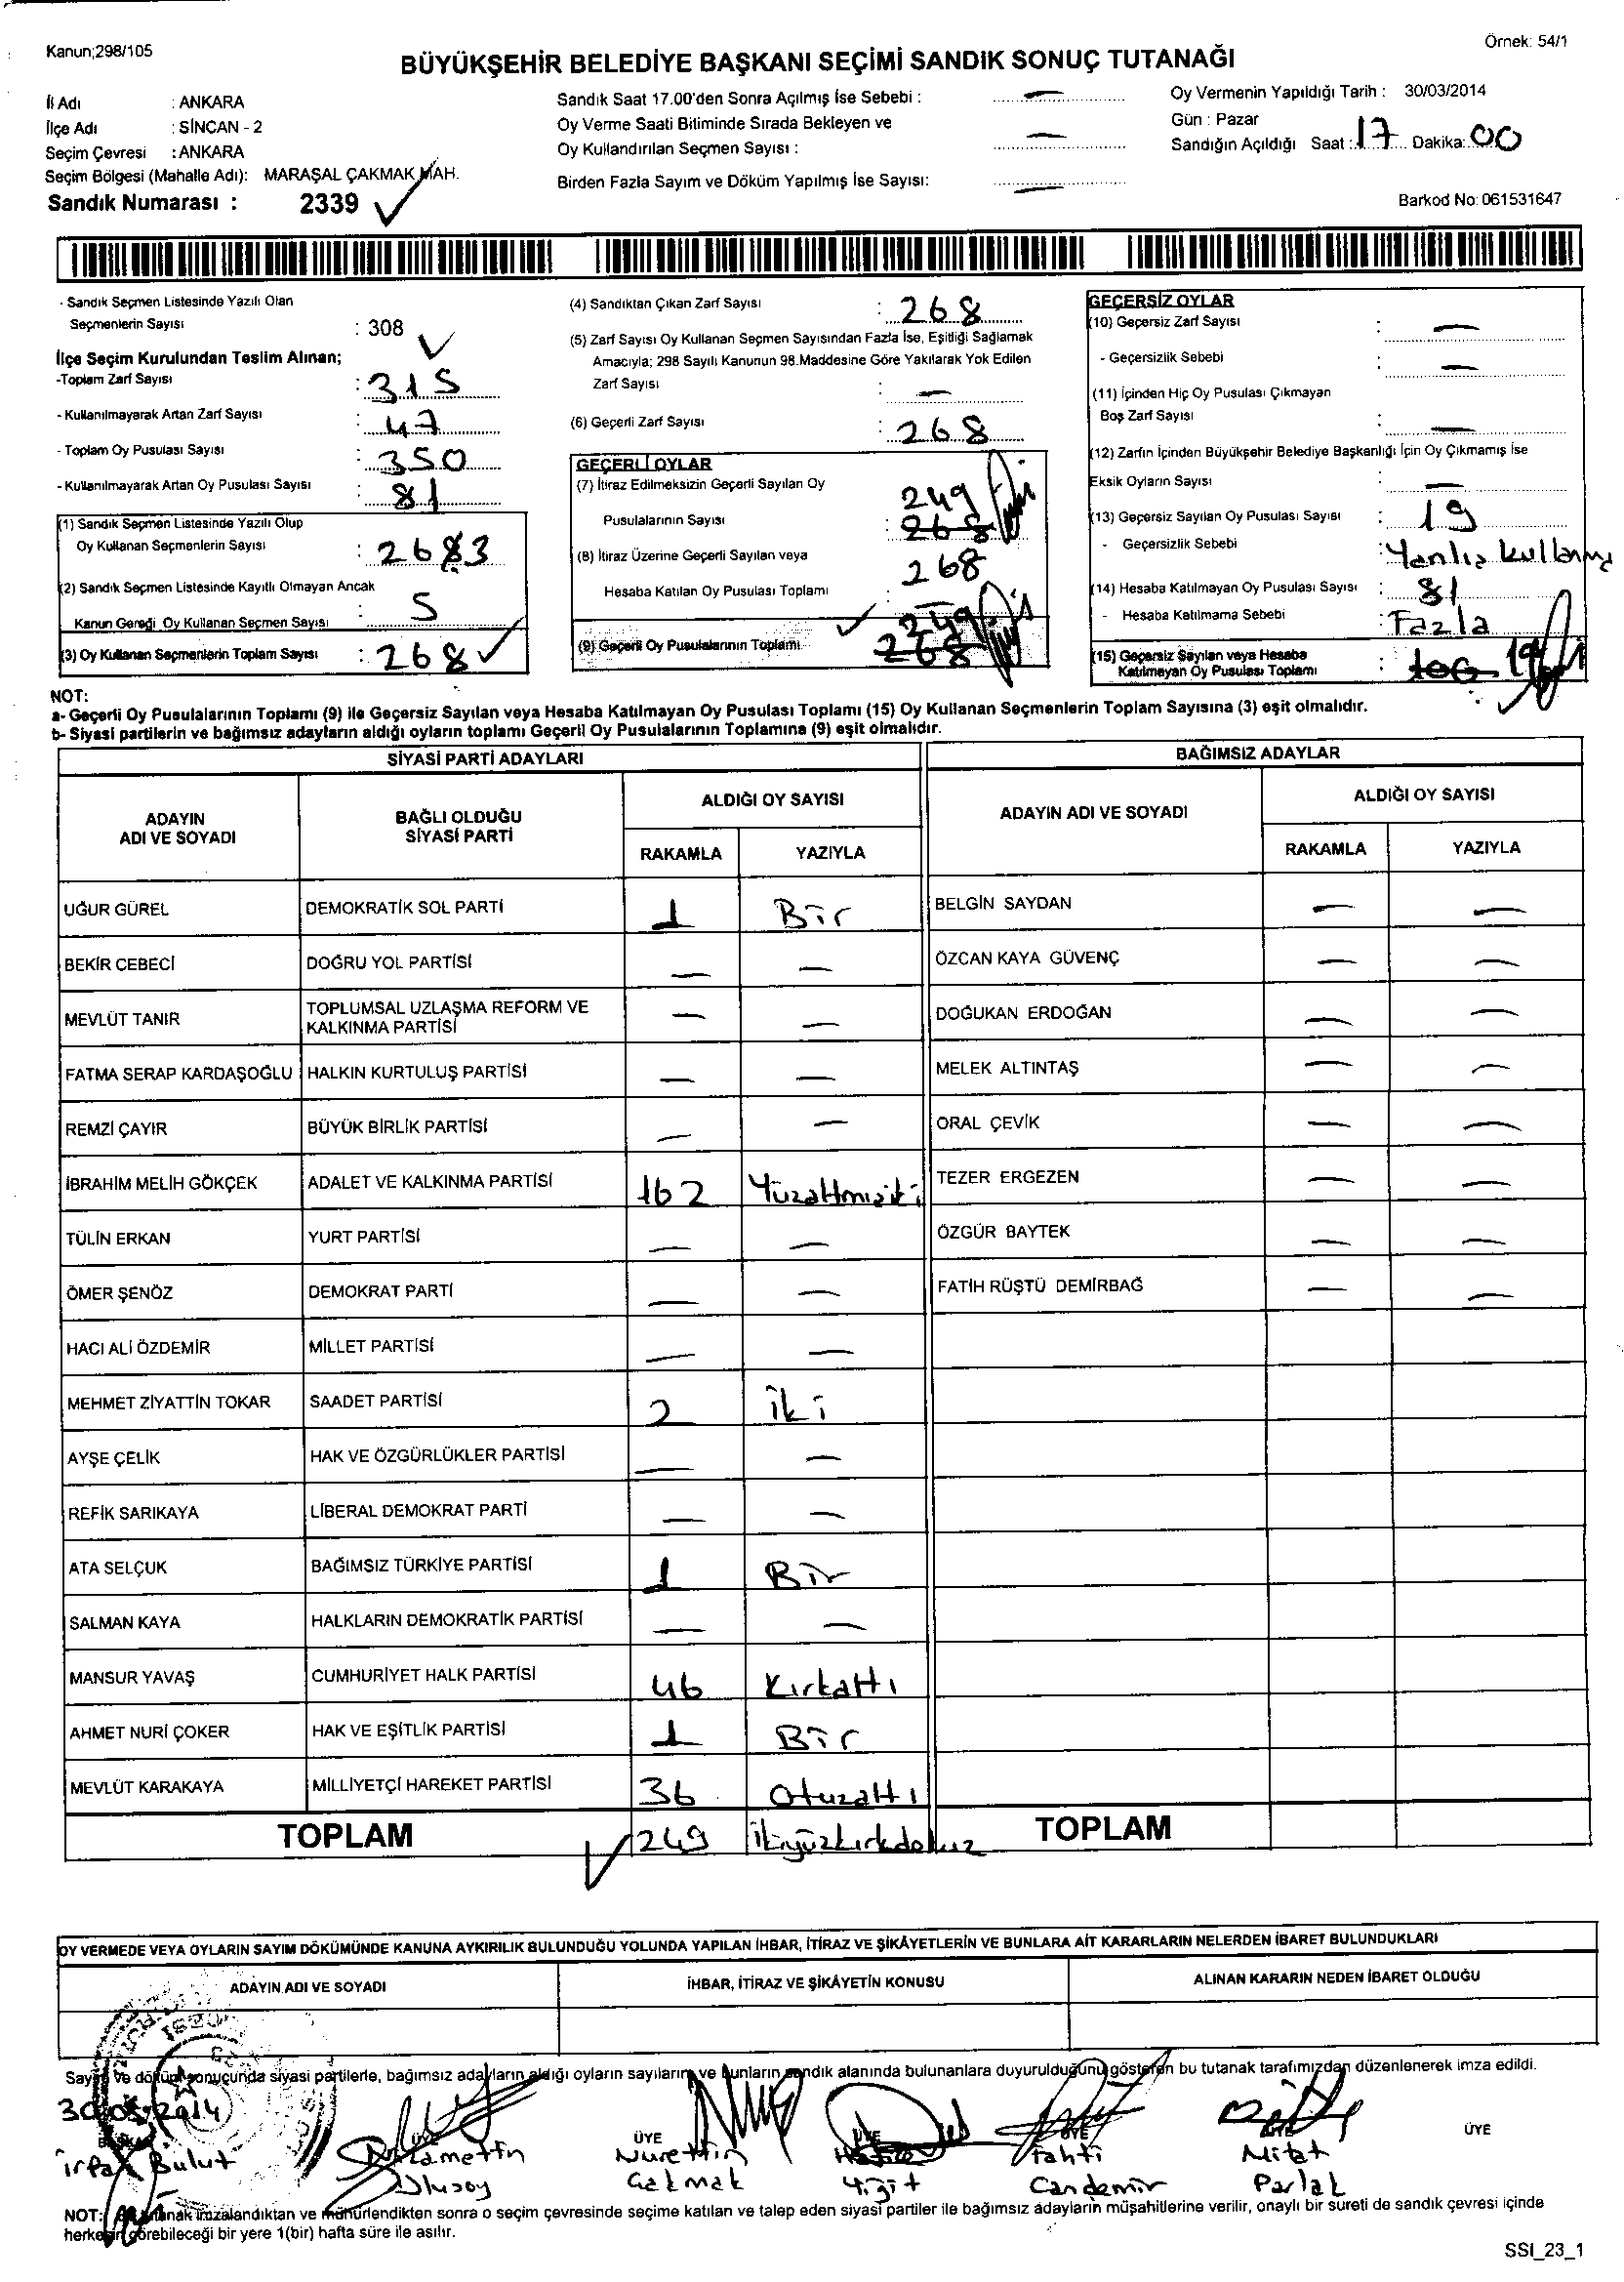 Kanun;298/105
Örnek: 54/1
BÜYÜKŞEHİR BELEDİYE BAŞKANI SEÇİMİ SANDIK SONUÇ TUTANAĞI
İl Adı : ANKARA
İlçe Adı : SİNCAN - 2
Seçim Çevresi : ANKARA
Seçim Bölgesi (Mahalle Adı): MARAŞAL ÇAKMAK MAH.
Sandık Numarası : 2339
Sandık Saat 17.00'den Sonra Açılmış İse Sebebi : —
Oy Verme Saati Bitiminde Sırada Bekleyen ve
Oy Kullandırılan Seçmen Sayısı : —
Birden Fazla Sayım ve Döküm Yapılmış İse Sayısı: —
Oy Vermenin Yapıldığı Tarih : 30/03/2014
Gün : Pazar
Sandığın Açıldığı Saat : 17 Dakika: 00
Barkod No: 061531647
- Sandık Seçmen Listesinde Yazılı Olan
Seçmenlerin Sayısı : 308
İlçe Seçim Kurulundan Teslim Alınan;
-Toplam Zarf Sayısı : 315
- Kullanılmayarak Artan Zarf Sayısı : 47
- Toplam Oy Pusulası Sayısı : 350
- Kullanılmayarak Artan Oy Pusulası Sayısı : 81
(1) Sandık Seçmen Listesinde Yazılı Olup
Oy Kullanan Seçmenlerin Sayısı : 263
(2) Sandık Seçmen Listesinde Kayıtlı Olmayan Ancak
Kanun Gereği Oy Kullanan Seçmen Sayısı : 5
(3) Oy Kullanan Seçmenlerin Toplam Sayısı : 268
(4) Sandıktan Çıkan Zarf Sayısı : 268
(5) Zarf Sayısı Oy Kullanan Seçmen Sayısından Fazla İse, Eşitliği Sağlamak
Amacıyla; 298 Sayılı Kanunun 98.Maddesine Göre Yakılarak Yok Edilen
Zarf Sayısı : —
(6) Geçerli Zarf Sayısı : 268
GEÇERLİ OYLAR
(7) İtiraz Edilmeksizin Geçerli Sayılan Oy 249
Pusulalarının Sayısı : 268
(8) İtiraz Üzerine Geçerli Sayılan veya 268
Hesaba Katılan Oy Pusulası Toplamı : —
249
(9) Geçerli Oy Pusulalarının Toplamı 268
GEÇERSİZ OYLAR
(10) Geçersiz Zarf Sayısı : —
- Geçersizlik Sebebi —
(11) İçinden Hiç Oy Pusulası Çıkmayan
Boş Zarf Sayısı : —
(12) Zarfın İçinden Büyükşehir Belediye Başkanlığı İçin Oy Çıkmamış İse
Eksik Oyların Sayısı —
(13) Geçersiz Sayılan Oy Pusulası Sayısı : 19
- Geçersizlik Sebebi : Yanlış kullanma
(14) Hesaba Katılmayan Oy Pusulası Sayısı : 81
- Hesaba Katılmama Sebebi : Fazla
(15) Geçersiz Sayılan veya Hesaba
Katılmayan Oy Pusulası Toplamı : 100 19
NOT:
a- Geçerli Oy Pusulalarının Toplamı (9) ile Geçersiz Sayılan veya Hesaba Katılmayan Oy Pusulası Toplamı (15) Oy Kullanan Seçmenlerin Toplam Sayısına (3) eşit olmalıdır.
b- Siyasi partilerin ve bağımsız adayların aldığı oyların toplamı Geçerli Oy Pusulalarının Toplamına (9) eşit olmalıdır.
SİYASİ PARTİ ADAYLARI
ADAYIN ADI VE SOYADI BAĞLI OLDUĞU SİYASİ PARTİ ALDIĞI OY SAYISI
RAKAMLA YAZIYLA
UĞUR GÜREL DEMOKRATİK SOL PARTİ 1 Bir
BEKİR CEBECİ DOĞRU YOL PARTİSİ — —
MEVLÜT TANIR TOPLUMSAL UZLAŞMA REFORM VE KALKINMA PARTİSİ — —
FATMA SERAP KARDAŞOĞLU HALKIN KURTULUŞ PARTİSİ — —
REMZİ ÇAYIR BÜYÜK BİRLİK PARTİSİ — —
İBRAHİM MELİH GÖKÇEK ADALET VE KALKINMA PARTİSİ 162 Yüzaltmışiki
TÜLİN ERKAN YURT PARTİSİ — —
ÖMER ŞENÖZ DEMOKRAT PARTİ — —
HACI ALİ ÖZDEMİR MİLLET PARTİSİ — —
MEHMET ZİYATTİN TOKAR SAADET PARTİSİ 2 iki
AYŞE ÇELİK HAK VE ÖZGÜRLÜKLER PARTİSİ — —
REFİK SARIKAYA LİBERAL DEMOKRAT PARTİ — —
ATA SELÇUK BAĞIMSIZ TÜRKİYE PARTİSİ 1 Bir
SALMAN KAYA HALKLARIN DEMOKRATİK PARTİSİ — —
MANSUR YAVAŞ CUMHURİYET HALK PARTİSİ 46 Kırkaltı
AHMET NURİ ÇOKER HAK VE EŞİTLİK PARTİSİ 1 Bir
MEVLÜT KARAKAYA MİLLİYETÇİ HAREKET PARTİSİ 36 Otuzaltı
TOPLAM 249 İkiyüzkırkdokuz
BAĞIMSIZ ADAYLAR
ADAYIN ADI VE SOYADI ALDIĞI OY SAYISI
RAKAMLA YAZIYLA
BELGİN SAYDAN — —
ÖZCAN KAYA GÜVENÇ — —
DOĞUKAN ERDOĞAN — —
MELEK ALTINTAŞ — —
ORAL ÇEVİK — —
TEZER ERGEZEN — —
ÖZGÜR BAYTEK — —
FATİH RÜŞTÜ DEMİRBAĞ — —
TOPLAM
OY VERMEDE VEYA OYLARIN SAYIM DÖKÜMÜNDE KANUNA AYKIRILIK BULUNDUĞU YOLUNDA YAPILAN İHBAR, İTİRAZ VE ŞİKÂYETLERİN VE BUNLARA AİT KARARLARIN NELERDEN İBARET BULUNDUKLARI
ADAYIN ADI VE SOYADI İHBAR, İTİRAZ VE ŞİKÂYETİN KONUSU ALINAN KARARIN NEDEN İBARET OLDUĞU
Sayım ve döküm sonucunda siyasi partilerle, bağımsız adayların aldığı oyların sayılarını ve bunların sandık alanında bulunanlara duyurulduğunu gösteren bu tutanak tarafımızdan düzenlenerek imza edildi.
30.03.2014
ÜYE ÜYE ÜYE ÜYE ÜYE ÜYE
irfan Bulut
Nurettin Çakmak
Yiğit
Fahti Candemir
Mitat Parlak
NOT: Bu tutanak imzalandıktan ve mühürlendikten sonra o seçim çevresinde seçime katılan ve talep eden siyasi partiler ile bağımsız adayların müşahitlerine verilir, onaylı bir sureti de sandık çevresi içinde
herkesin görebileceği bir yere 1(bir) hafta süre ile asılır.
SSI_23_1